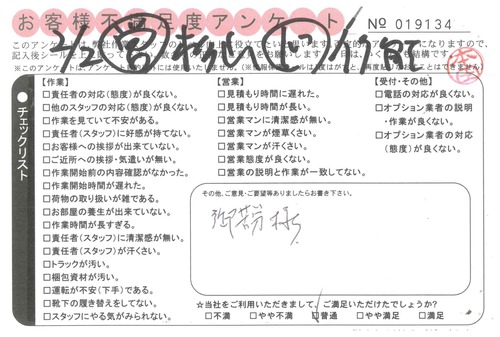 お客様不満足度アンケート
№ 019134
チェックリスト
【作業】
□責任者の対応(態度)が良くない。
□他のスタッフの対応(態度)が良くない。
□作業を見ていて不安がある。
□責任者(スタッフ)に好感が持てない。
□お客様への挨拶が出来ていない。
□ご近所への挨拶・気遣いが無い。
□作業開始前の内容確認がなかった。
□作業開始時間が遅れた。
□荷物の取り扱いが雑である。
□お部屋の養生が出来ていない。
□作業時間が長すぎる。
□責任者(スタッフ)に清潔感が無い。
□責任者(スタッフ)が汗くさい。
□トラックが汚い。
□梱包資材が汚い。
□運転が不安(下手)である。
□靴下の履き替えをしてない。
□スタッフにやる気がみられない。
【営業】
□見積もり時間に遅れた。
□見積もり時間が長い。
□営業マンに清潔感が無い。
□営業マンが煙草くさい。
□営業マンが汗くさい。
□営業態度が良くない。
□営業の説明と作業が一致してない。
【受付・その他】
□電話の対応が良くない。
□オプション業者の説明
・作業が良くない。
□オプション業者の対応
(態度)が良くない。
その他、ご意見・ご要望等ありましたらお書き下さい。
御苦労様
☆当社をご利用いただきまして、ご満足いただけたでしょうか?
□不満 □やや不満 □普通 □やや満足 □満足